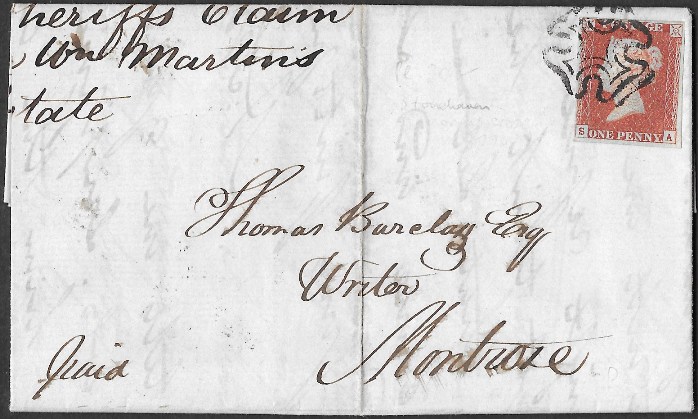 heriffs Claim
Wm Martins
state
POSTAGE
S A
ONE PENNY
Thomas Barclay Esq
Writer
Montrose
Paid